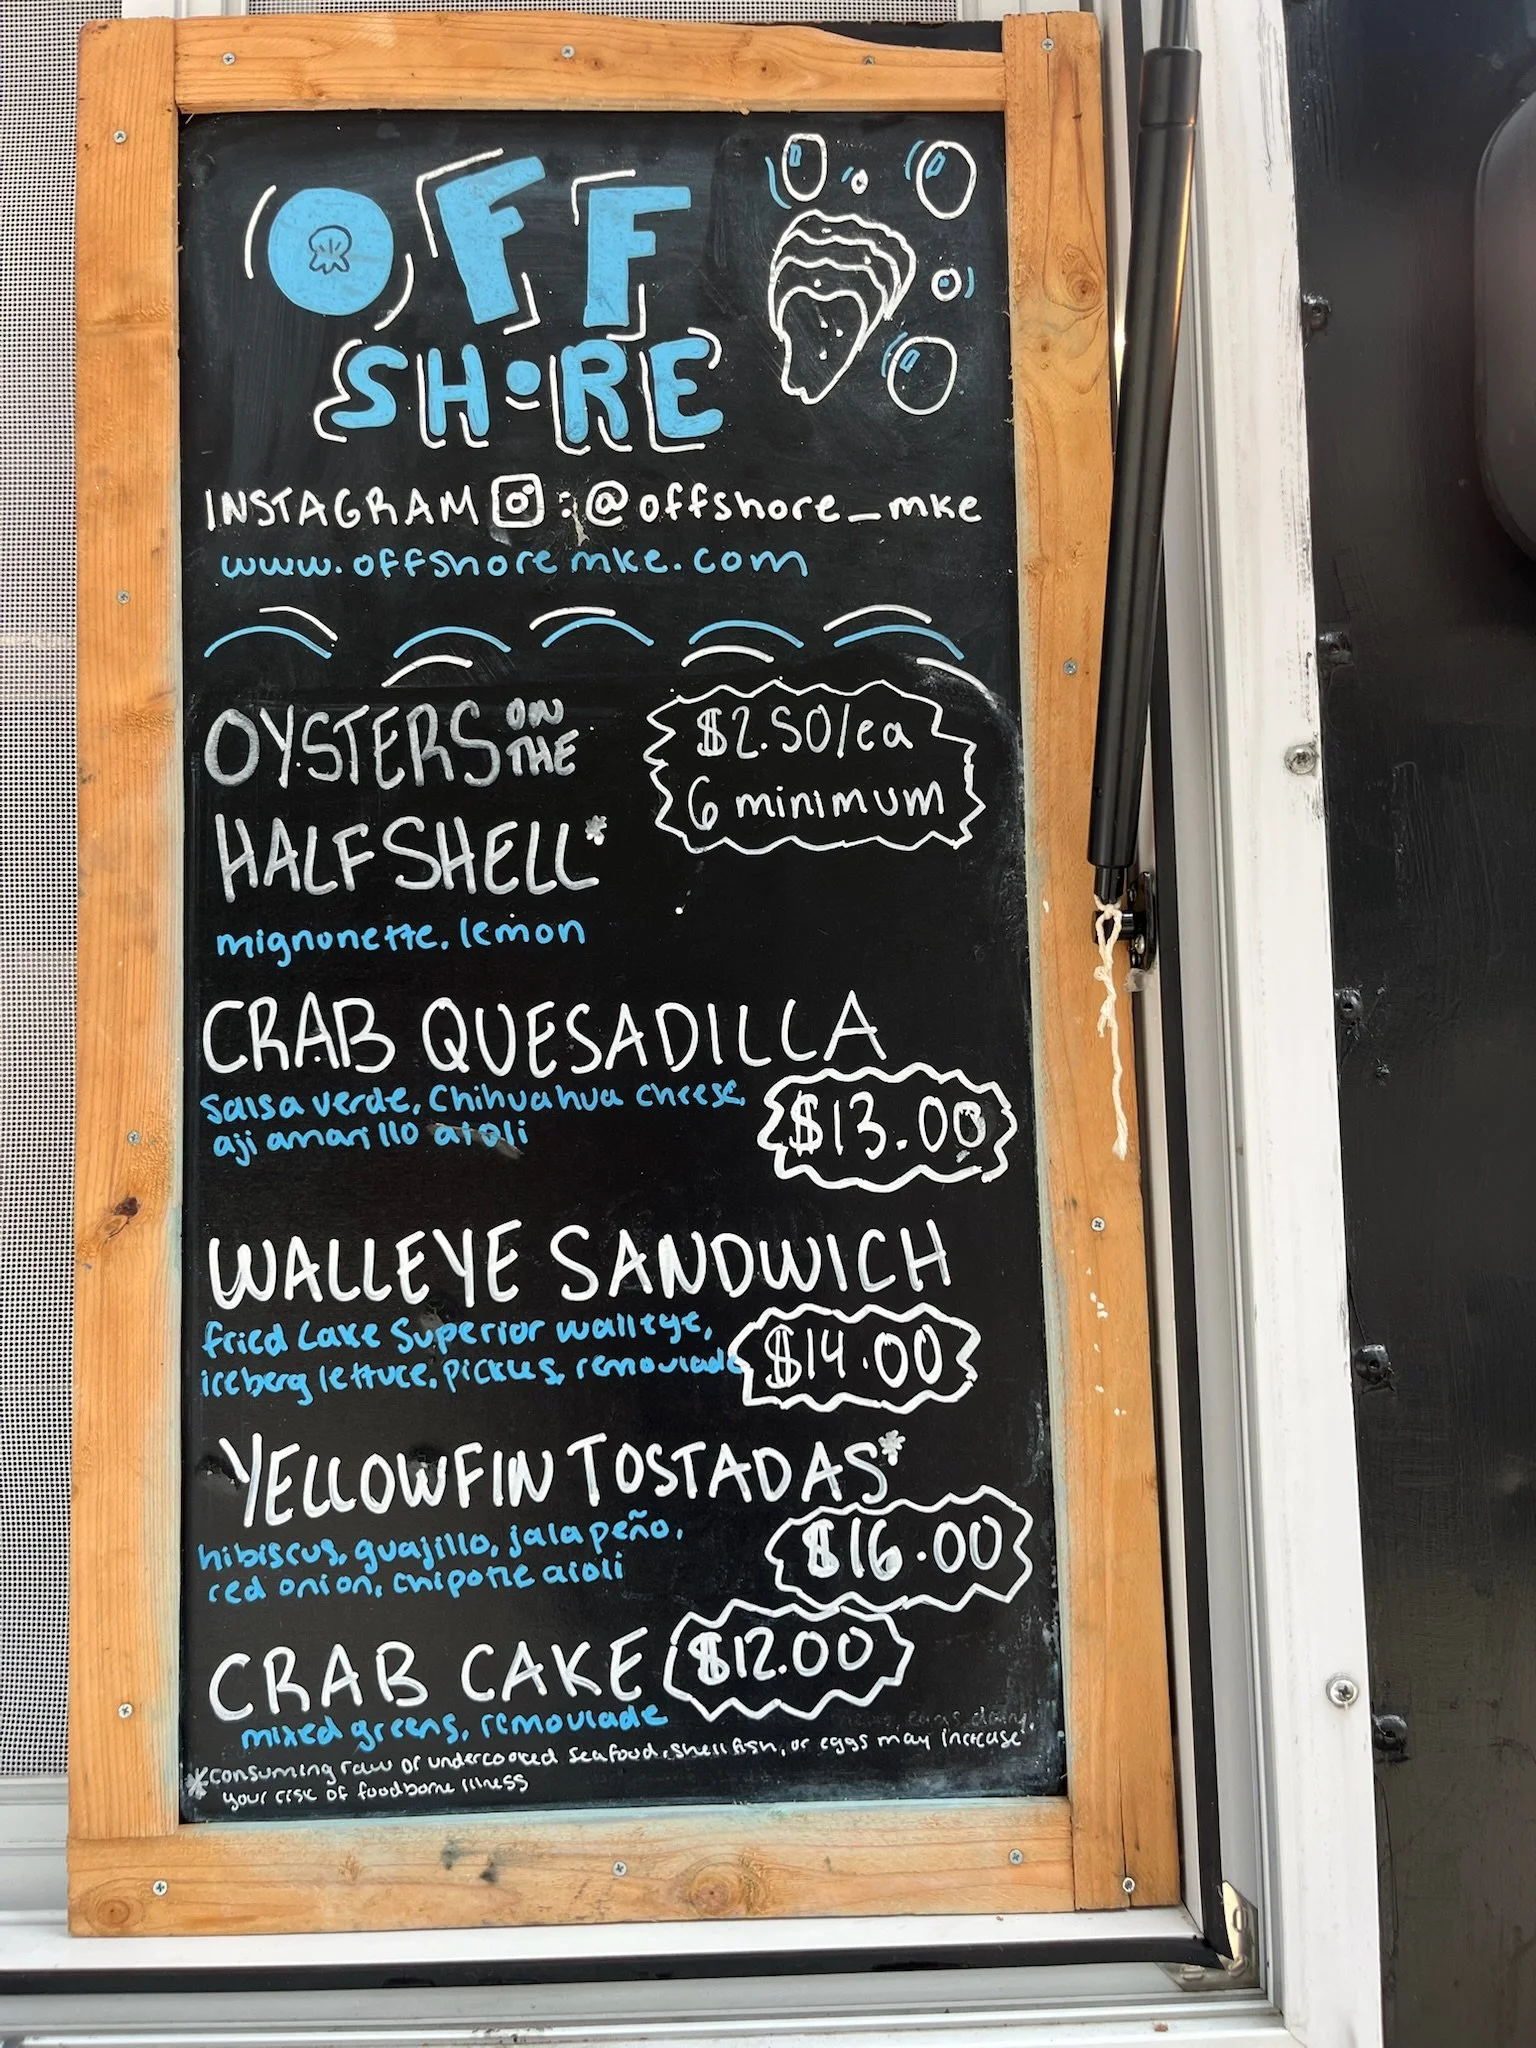 OFF
SHORE
INSTAGRAM : @offshore_mke
www.offshoremke.com
OYSTERS ON THE
HALF SHELL*
$2.50/ea
6 minimum
mignonette, lemon
CRAB QUESADILLA
salsa verde, Chihuahua cheese,
aji amarillo aioli
$13.00
WALLEYE SANDWICH
fried Lake Superior walleye,
iceberg lettuce, pickles, remoulade
$14.00
YELLOWFIN TOSTADAS*
hibiscus, guajillo, jalapeño,
red onion, chipotle aioli
$16.00
CRAB CAKE $12.00
mixed greens, remoulade
*consuming raw or undercooked seafood, shellfish, or eggs may increase
your risk of foodborne illness